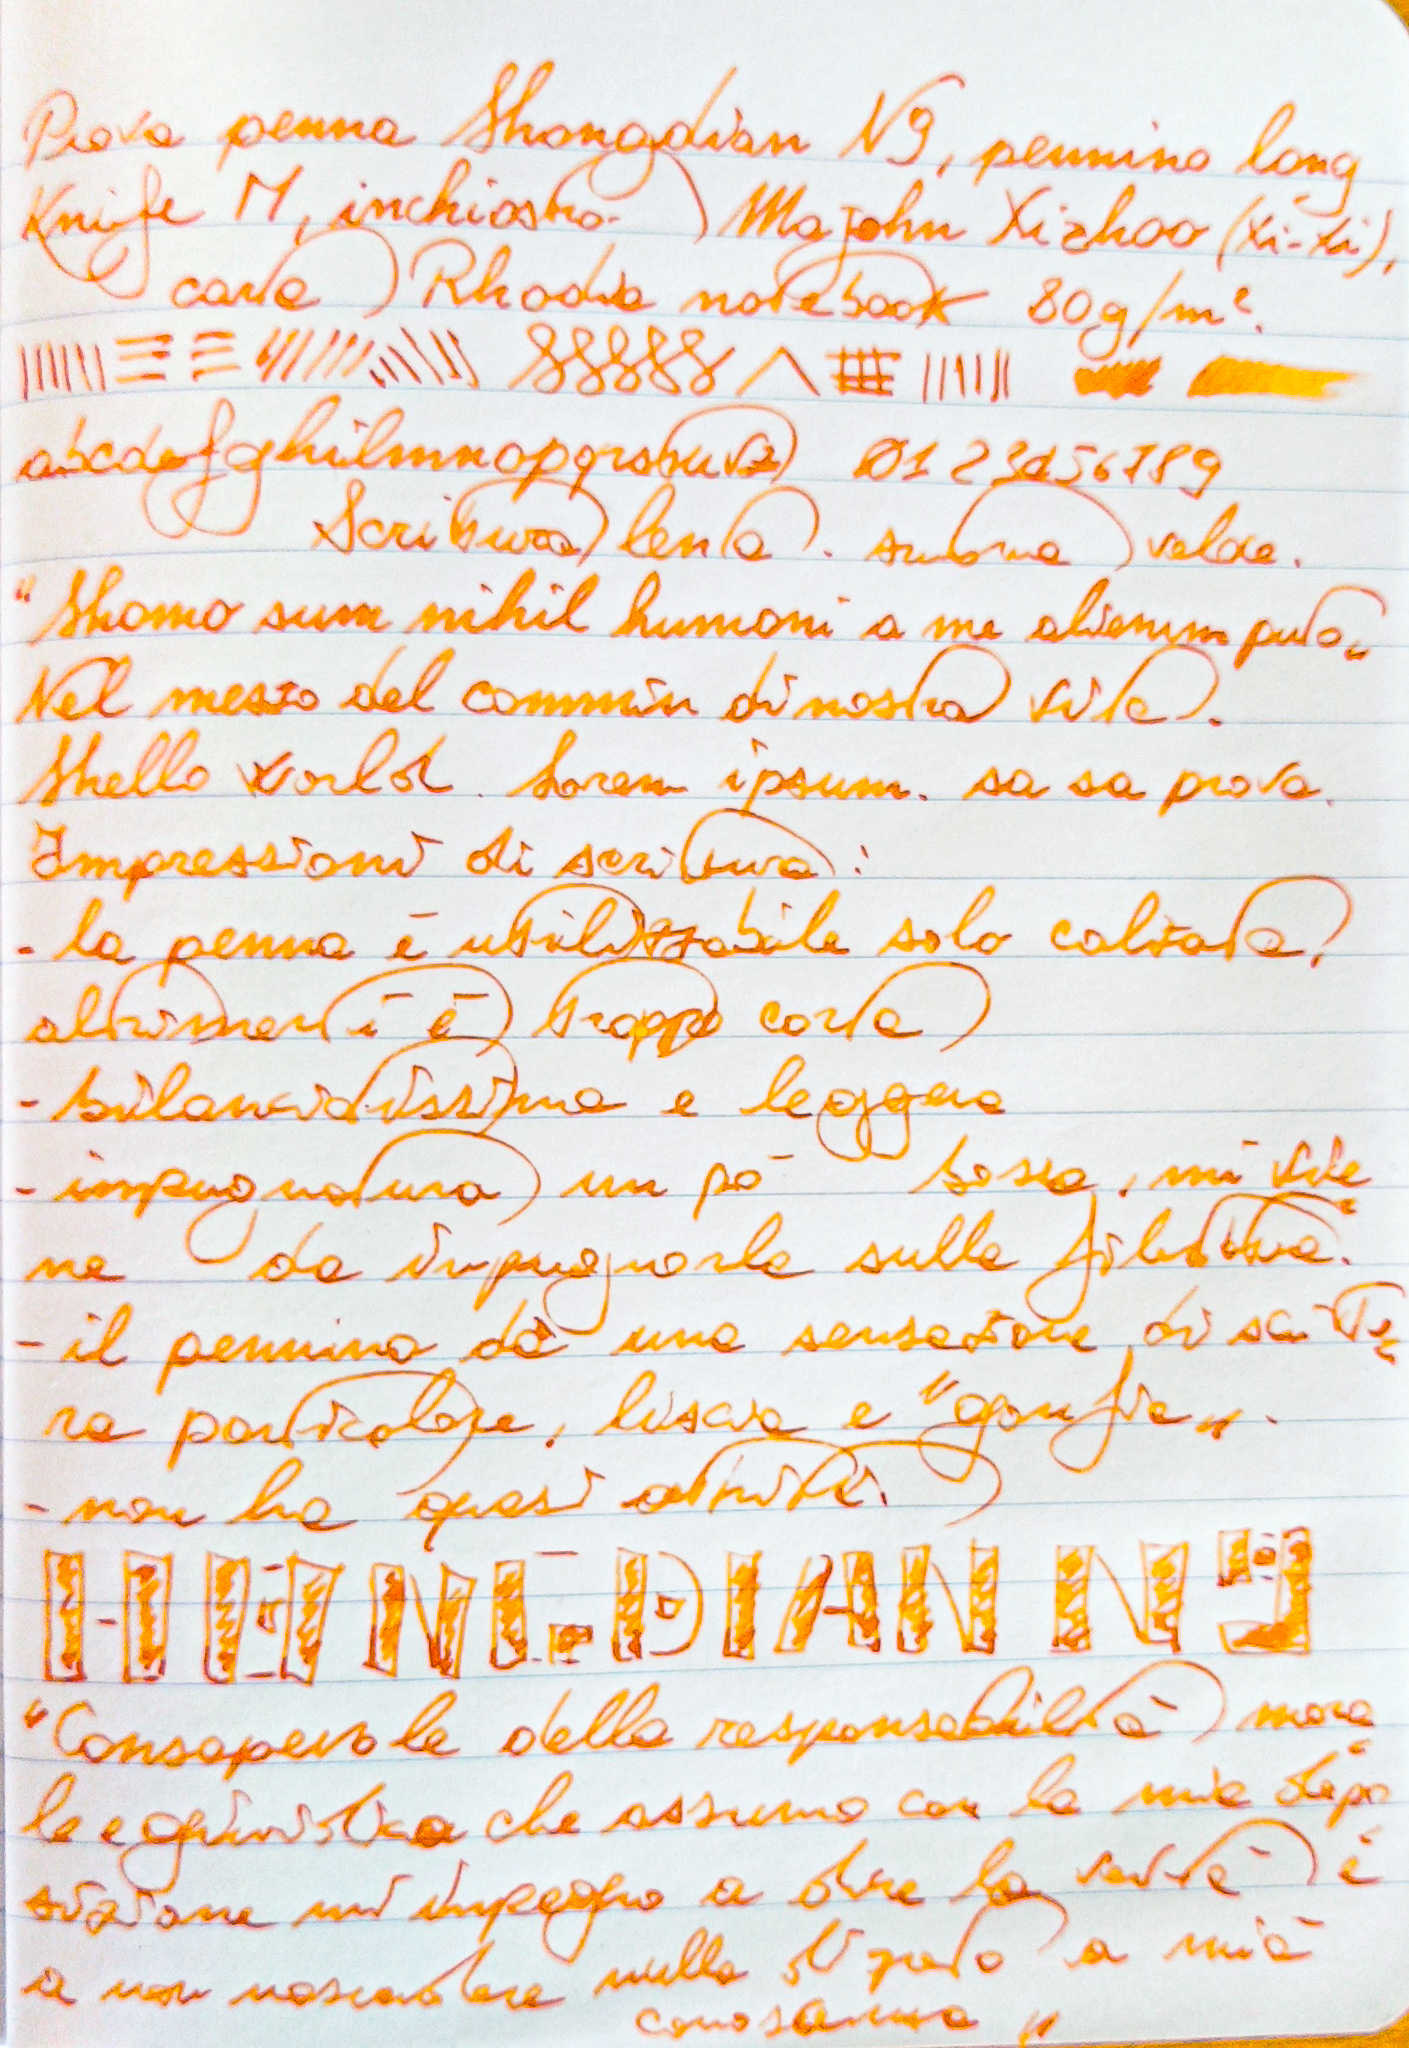 Prova penna Hongdian N9, pennino long
Knife M, inchiostro Majohn Xizhao (Xi-Xi),
carta Rhodia notebook 80g/m².
abcdefghilmnopqrstuvz 0123456789
Scrittura lenta. scrittura veloce.
"Homo sum nihil humani a me alienum puto"
Nel mezzo del cammin di nostra vita.
Hello World. Lorem ipsum. sa sa prova.
Impressioni di scrittura:
- la penna è utilizzabile solo calzata,
altrimenti è troppo corta
- bilanciatissima e leggera
- impugnatura un pò bassa, mi vie
ne da impugnarla sulla filettatura.
- il pennino dà una sensazione di scrittu
ra particolare, liscia e "gonfia".
- non ha quasi attriti.
HONGDIAN N9
"Consapevole della responsabilità mora
le e giuridica che assumo con la mia depo
sizione mi impegno a dire la verità e
a non nascondere nulla di quanto a mia
conoscenza"